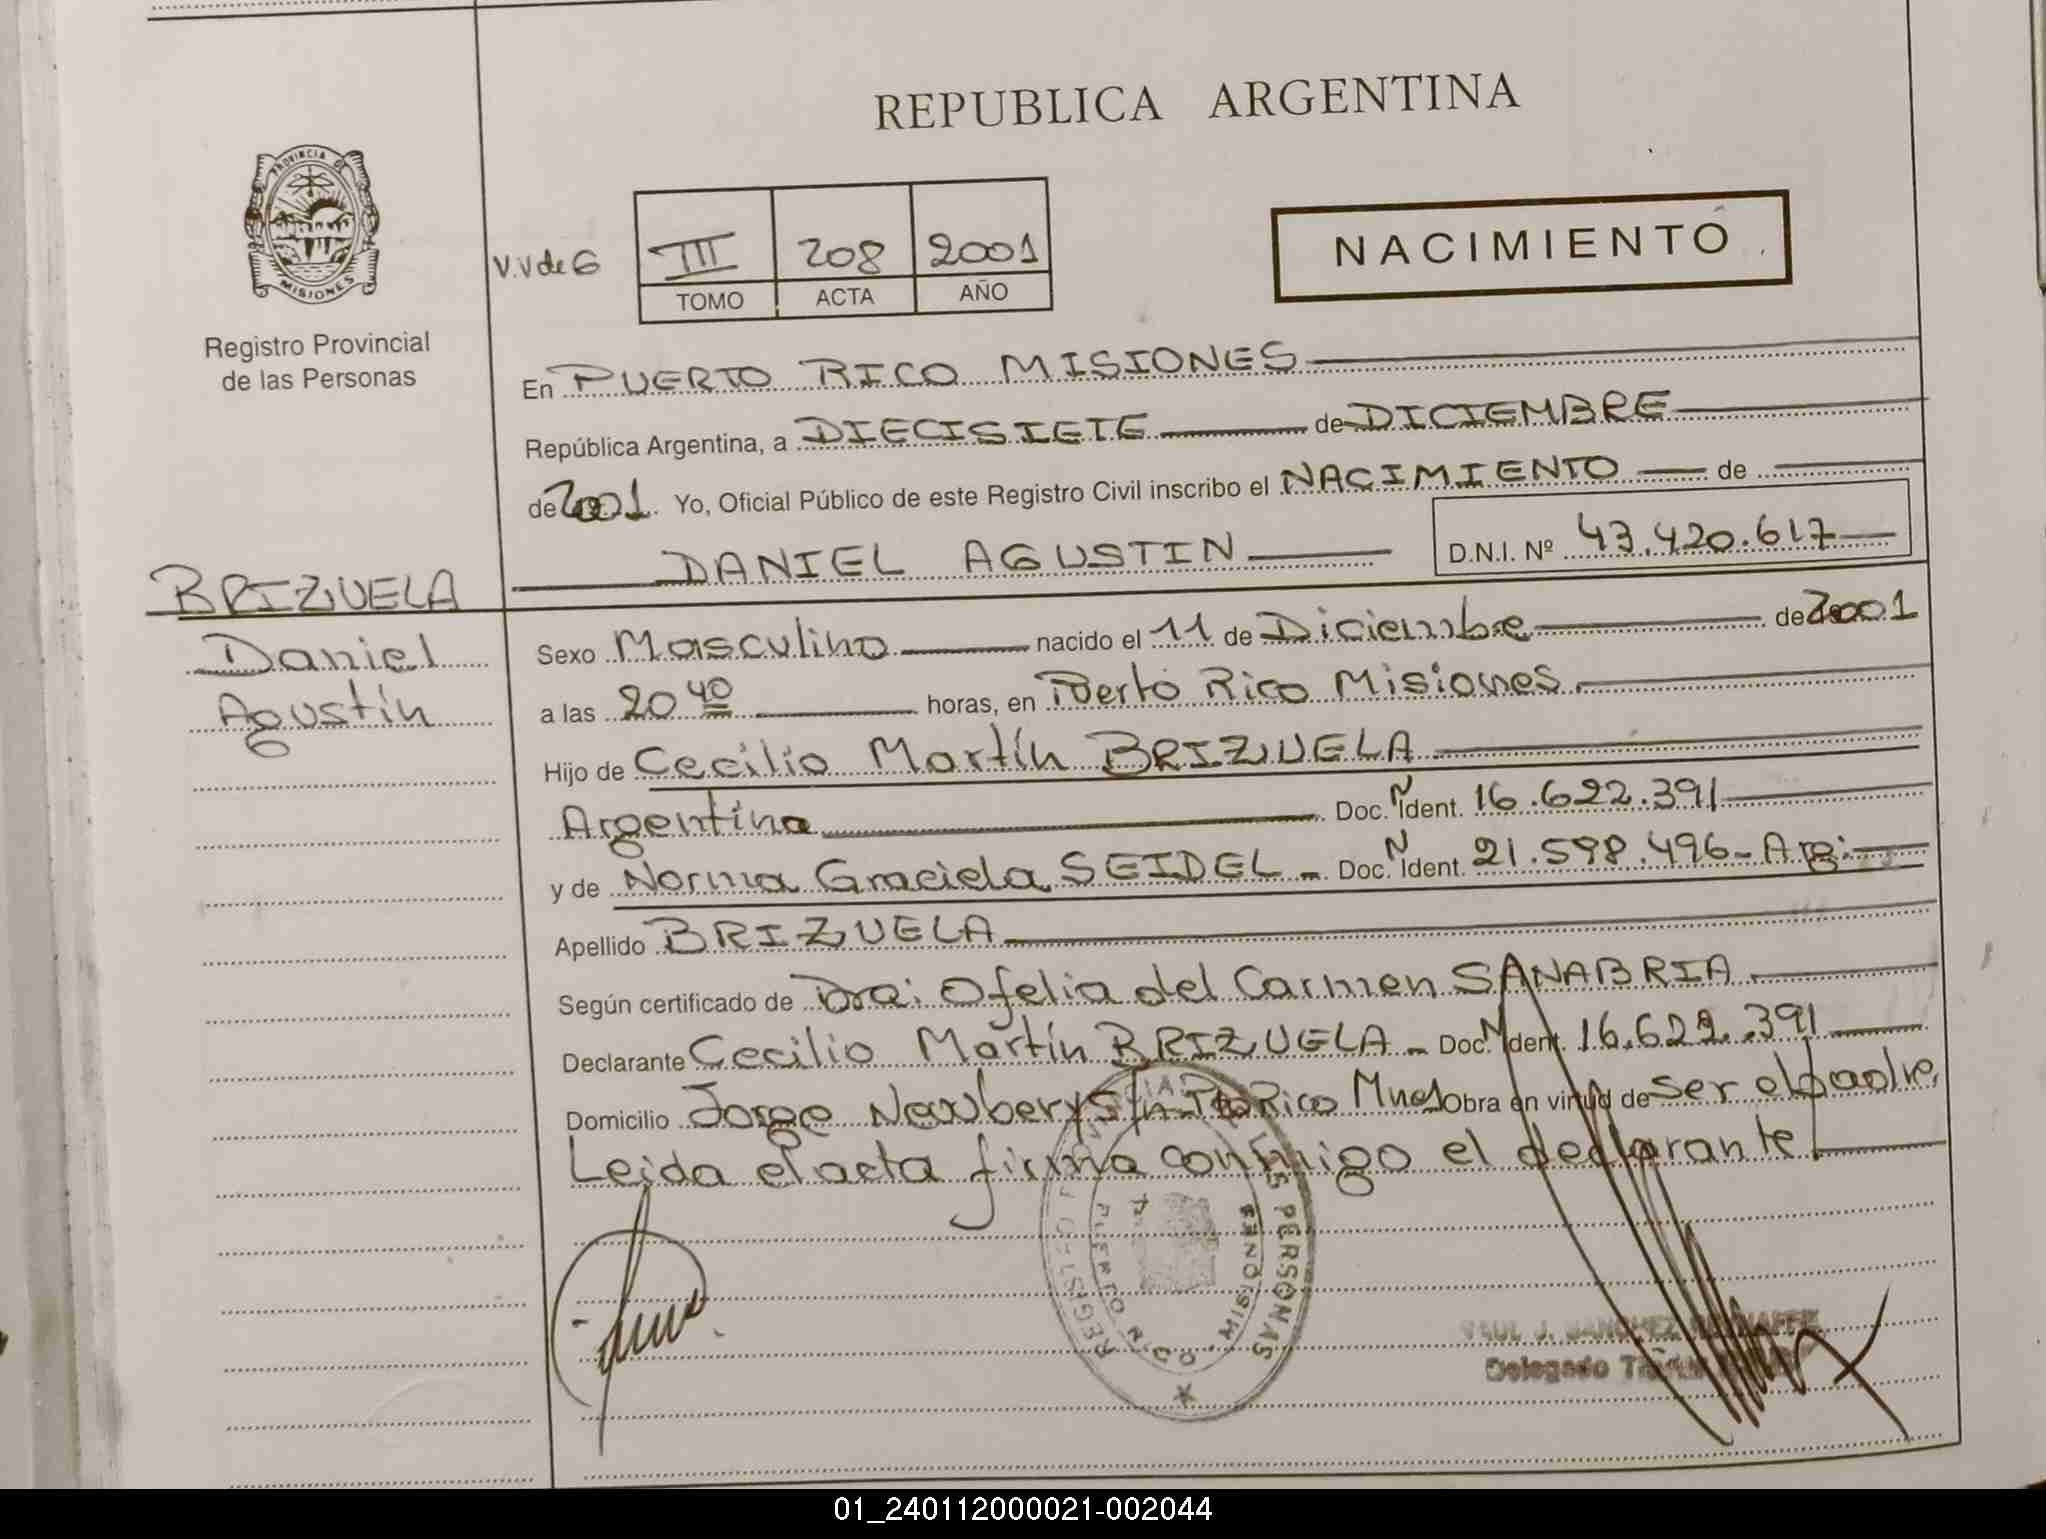 REPUBLICA ARGENTINA
PROVINCIA DE
MISIONES
Registro Provincial
de las Personas
V.V de 6
III 208 2001
TOMO ACTA AÑO
NACIMIENTO
En PUERTO RICO MISIONES
República Argentina, a DIECISIETE de DICIEMBRE
de 2001. Yo, Oficial Público de este Registro Civil inscribo el NACIMIENTO de
DANIEL AGUSTIN D.N.I. Nº 43.420.617
BRIZUELA
Daniel
Agustín
Sexo Masculino nacido el 11 de Diciembre de 2001
a las 20 40 horas, en Puerto Rico Misiones.
Hijo de Cecilio Martín BRIZUELA
Argentina Doc. N Ident. 16.622.391
y de Norma Graciela SEIDEL - Doc. N Ident. 21.598.496 - Arg.
Apellido BRIZUELA
Según certificado de Dra. Ofelia del Carmen SANABRIA.
Declarante Cecilio Martín BRIZUELA - Doc. N Ident. 16.622.391
Domicilio Jorge Newbery S/n Pto Rico Mnes Obra en virtud de ser el padre.
Leida el acta firma conmigo el declarante
REGISTRO PERSONAS
PUERTO RICO - MISIONES
SANCHEZ
Delegado
01_240112000021-002044